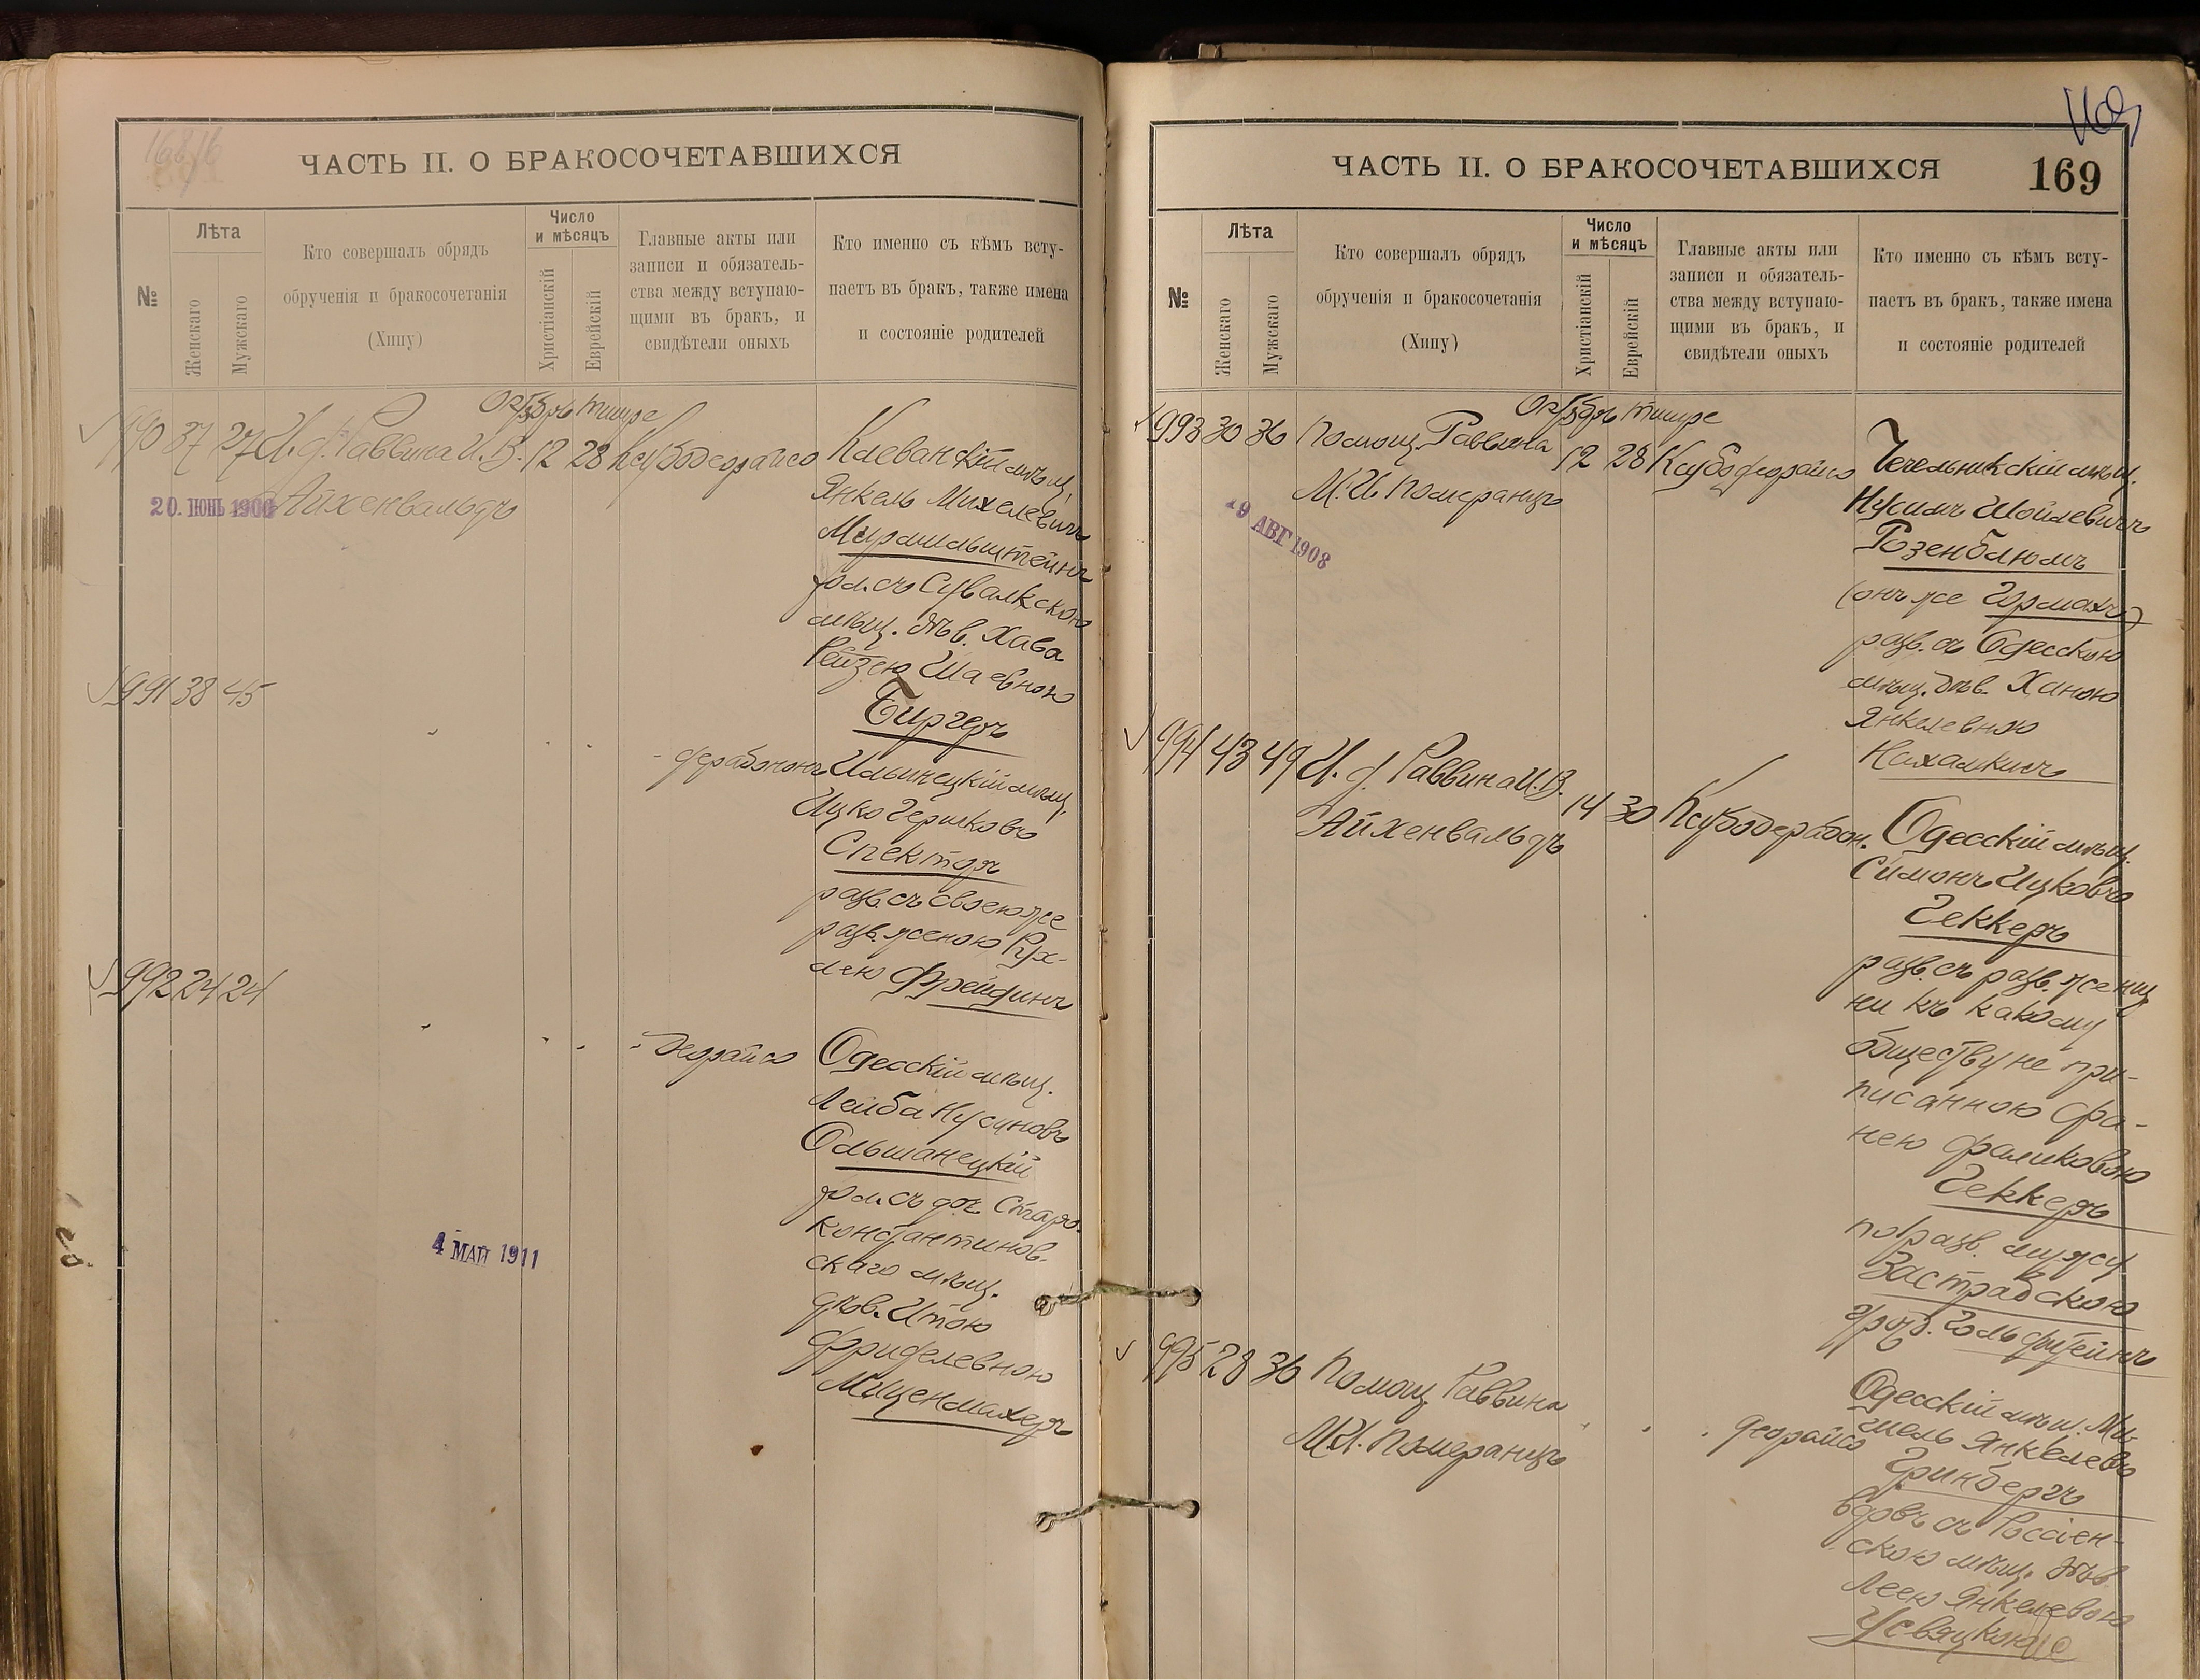 ЧАСТЬ II. О БРАКОСОЧЕТАВШИХСЯ
№
Лѣта
Женскаго
Мужскаго
Кто совершалъ обрядъ
обрученія и бракосочетанія
(Хипу)
Число
и мѣсяцъ
Христіанскій
Еврейскій
Главные акты или
записи и обязатель-
ства между вступаю-
щими въ бракъ, и
свидѣтели оныхъ
Кто именно съ кѣмъ всту-
паетъ въ бракъ, также имена
и состояніе родителей
990 37 27 И. д. Раввина И. В.
Айхенвальдъ
20. ІЮНЬ
Октябрь Тишре
12 28 Ксубодеорайсо
Клеванскій мѣщ.
Янкель Михелевичъ
Мурмильштейнъ
хол. съ Сувалкскою
мѣщ. дѣв. Хава
Рейзею Шаевною
Биргеръ
991 38 45
- дерабононъ
Ильинецкій мѣщ.
Ицко Гершковъ
Спекторъ
разв. съ своею же
разв. женою Рух-
лею Фрейдинъ
992 24 24
- Деорайсо
Одесскій мѣщ.
Лейба Нусиновъ
Ольшанецкій
хол. съ доч. Старо-
константинов-
скаго мѣщ.
дѣв. Итою
Фриделевною
Миценмахеръ
4 МАЙ 1911
169
ЧАСТЬ II. О БРАКОСОЧЕТАВШИХСЯ
169
№
Лѣта
Женскаго
Мужскаго
Кто совершалъ обрядъ
обрученія и бракосочетанія
(Хипу)
Число
и мѣсяцъ
Христіанскій
Еврейскій
Главные акты или
записи и обязатель-
ства между вступаю-
щими въ бракъ, и
свидѣтели оныхъ
Кто именно съ кѣмъ всту-
паетъ въ бракъ, также имена
и состояніе родителей
993 30 36 Помощ. Раввина
М. И. Померанцъ
19 АВГ 1908
Октябрь Тишре
12 28 Ксубодеорайсо
Чечельникскій мѣщ.
Нусимъ Шойлевичъ
Розенблюмъ
(онъ же Гормахъ)
разв. съ Одесскою
мѣщ. дѣв. Ханою
Янкелевною
Нахамкинъ
994 43 49 И. д. Раввина И. В.
Айхенвальдъ
14 30 Ксубодерабон.
Одесскій мѣщ.
Симонъ Ицковъ
Геккеръ
разв. съ разв. женщ.
ни къ какому
обществу не при-
писанною Фа-
нею Фаликовою
Геккеръ
по разв. мужу
Застравскою
урожд. Гольдштейнъ
995 28 36 Помощ. Раввина
М. И. Померанцъ
деорайсо
Одесскій мѣщ. Ми-
хель Янкелевъ
Гринбергъ
вдовъ съ Россіен-
скою мѣщ. дѣв.
Леею Янкелевою